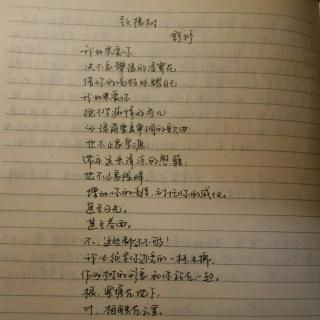 致橡树
舒婷
我如果爱你
决不像攀援的凌霄花
借你的高枝炫耀自己
我如果爱你
绝不学痴情的鸟儿
为绿荫重复单调的歌曲
也不止像泉源
常年送来清凉的慰藉
也不止像险峰
增加你的高度，衬托你的威仪。
甚至日光。
甚至春雨。
不，这些都还不够！
我必须是你近旁的一株木棉，
作为树的形象和你站在一起。
根，紧握在地下，
叶，相触在云里。